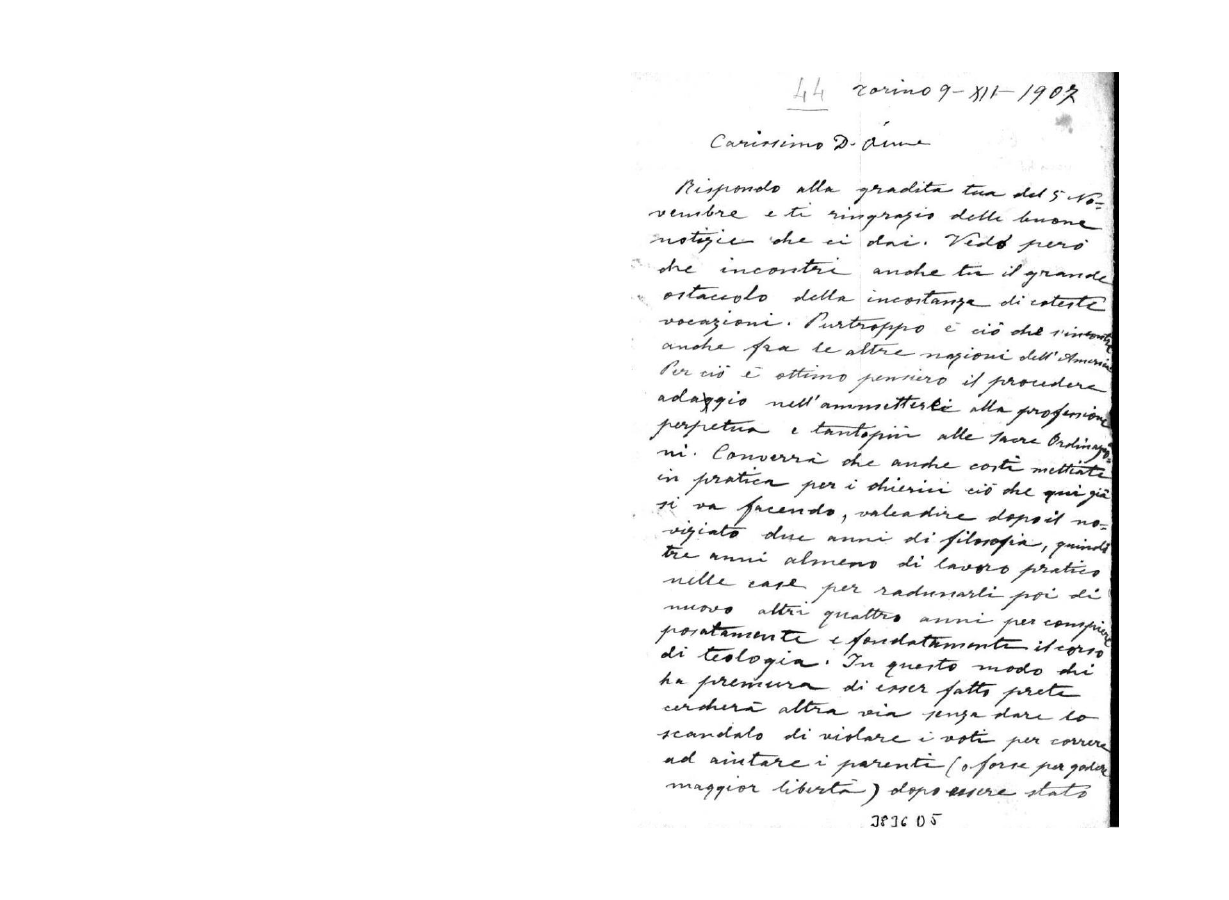 44 Torino 9-XII-1907
Carissimo D. Aime
Rispondo alla gradita tua del 5 No=
vembre e ti ringrazio delle buone
notizie che ci dai. Vedo però
che incontri anche tu il grande
ostacolo della incostanza di coteste
vocazioni. Purtroppo è ciò che s'incontra
anche fra le altre nazioni dell'America
Per ciò è ottimo pensiero il procedere
adaggio nell'ammetterli alla professione
perpetua e tantopiù alle sacre Ordinazio=
ni. Converrà che anche costì mettiate
in pratica per i chierici ciò che qui già
si va facendo, valeadire dopo il no=
viziato due anni di filosofia, quindi
tre anni almeno di lavoro pratico
nelle case per radunarli poi di
nuovo altri quattro anni per compiere
posatamente e fondatamente il corso
di teologia. In questo modo chi
ha premura di esser fatto prete
cercherà altra via senza dare lo
scandalo di violare i voti per correre
ad aiutare i parenti (o forse per godere
maggior libertà) dopo essere stato
3836 D5